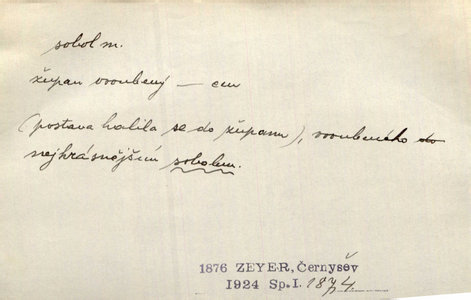 sobol m.
župan vroubený — em
(postava halila se do županu), vroubeného do
nejkrásnějším sobolem.
1876 ZEYER, Černyšev
1924 Sp. I. 1874.